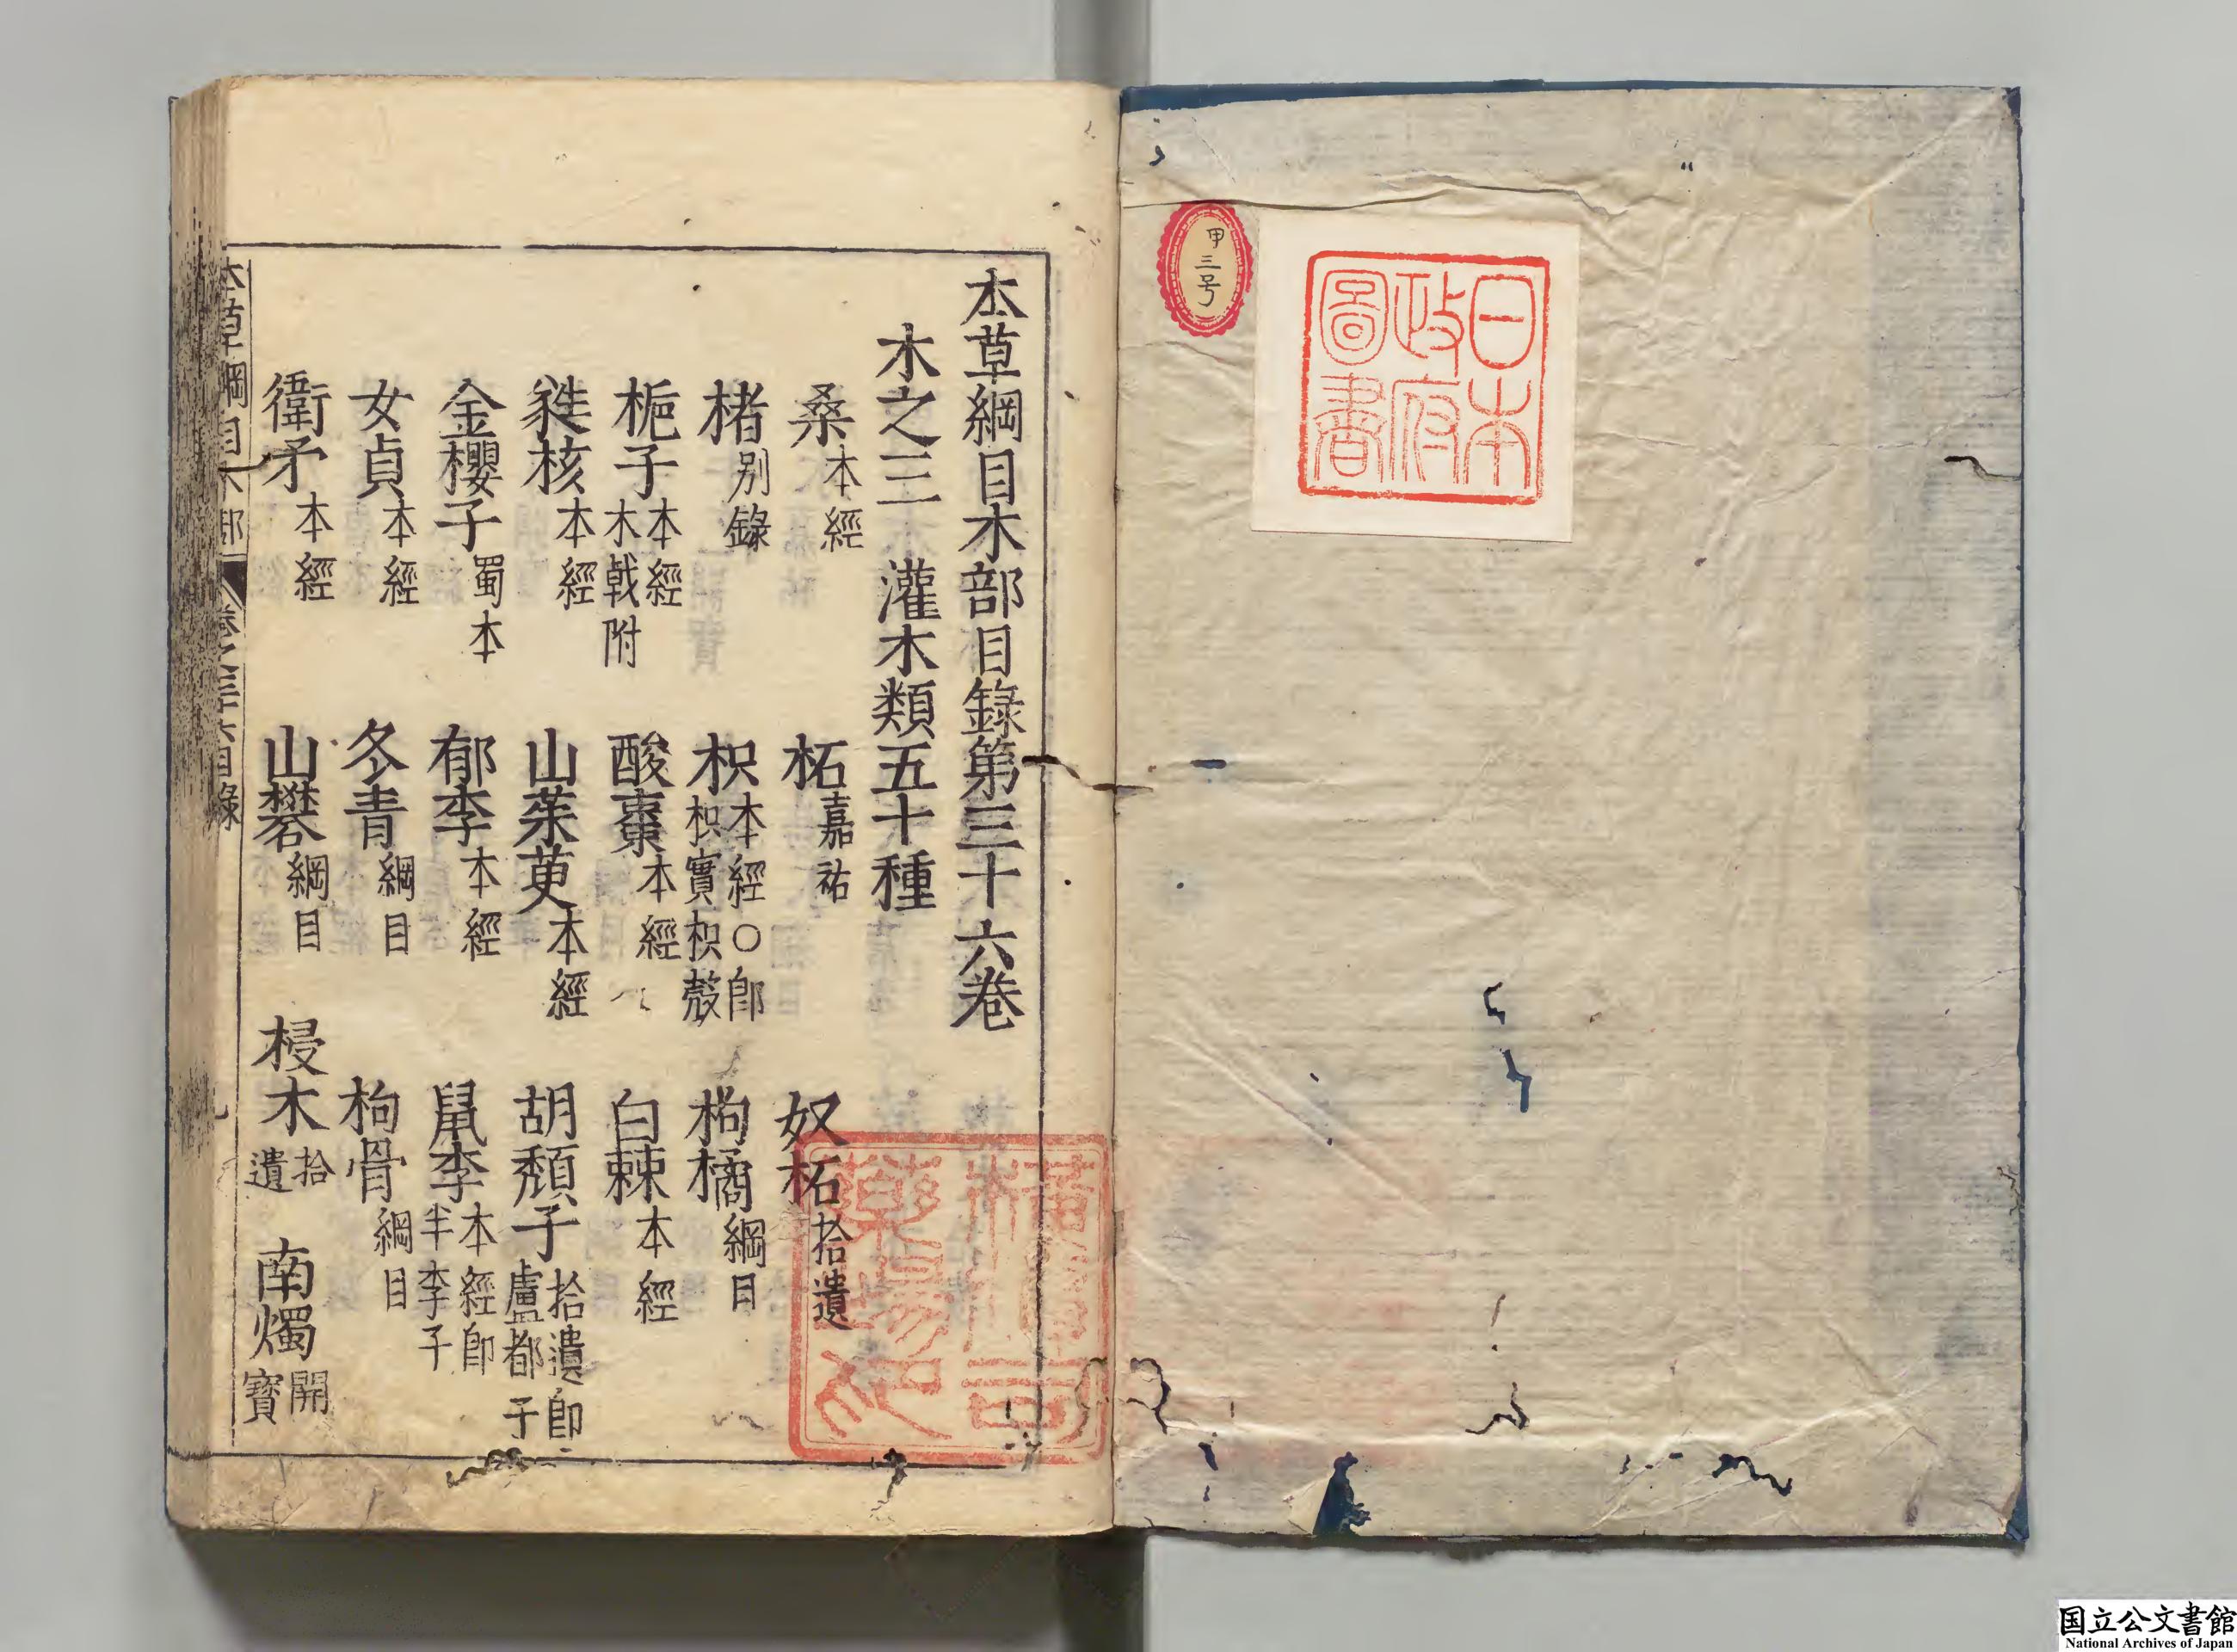 甲三号
日本
政府
圖書
本草綱目木部目錄第三十六卷
木之三 灌木類五十種
桑本經 柘嘉祐 奴柘拾遺
楮别錄 枳本經○卽枳實枳殼 枸橘綱目
梔子本經木戟附 酸棗本經 白棘本經
蕤核本經 山茱萸本經 胡頹子拾遺卽盧都子
金櫻子蜀本 郁李本經 鼠李本經卽牛李子
女貞本經 冬青綱目 枸骨綱目
衛矛本經 山礬綱目 梫木拾遺 南燭開寶
本草綱目木部 卷之三十六目錄
国立公文書館
National Archives of Japan